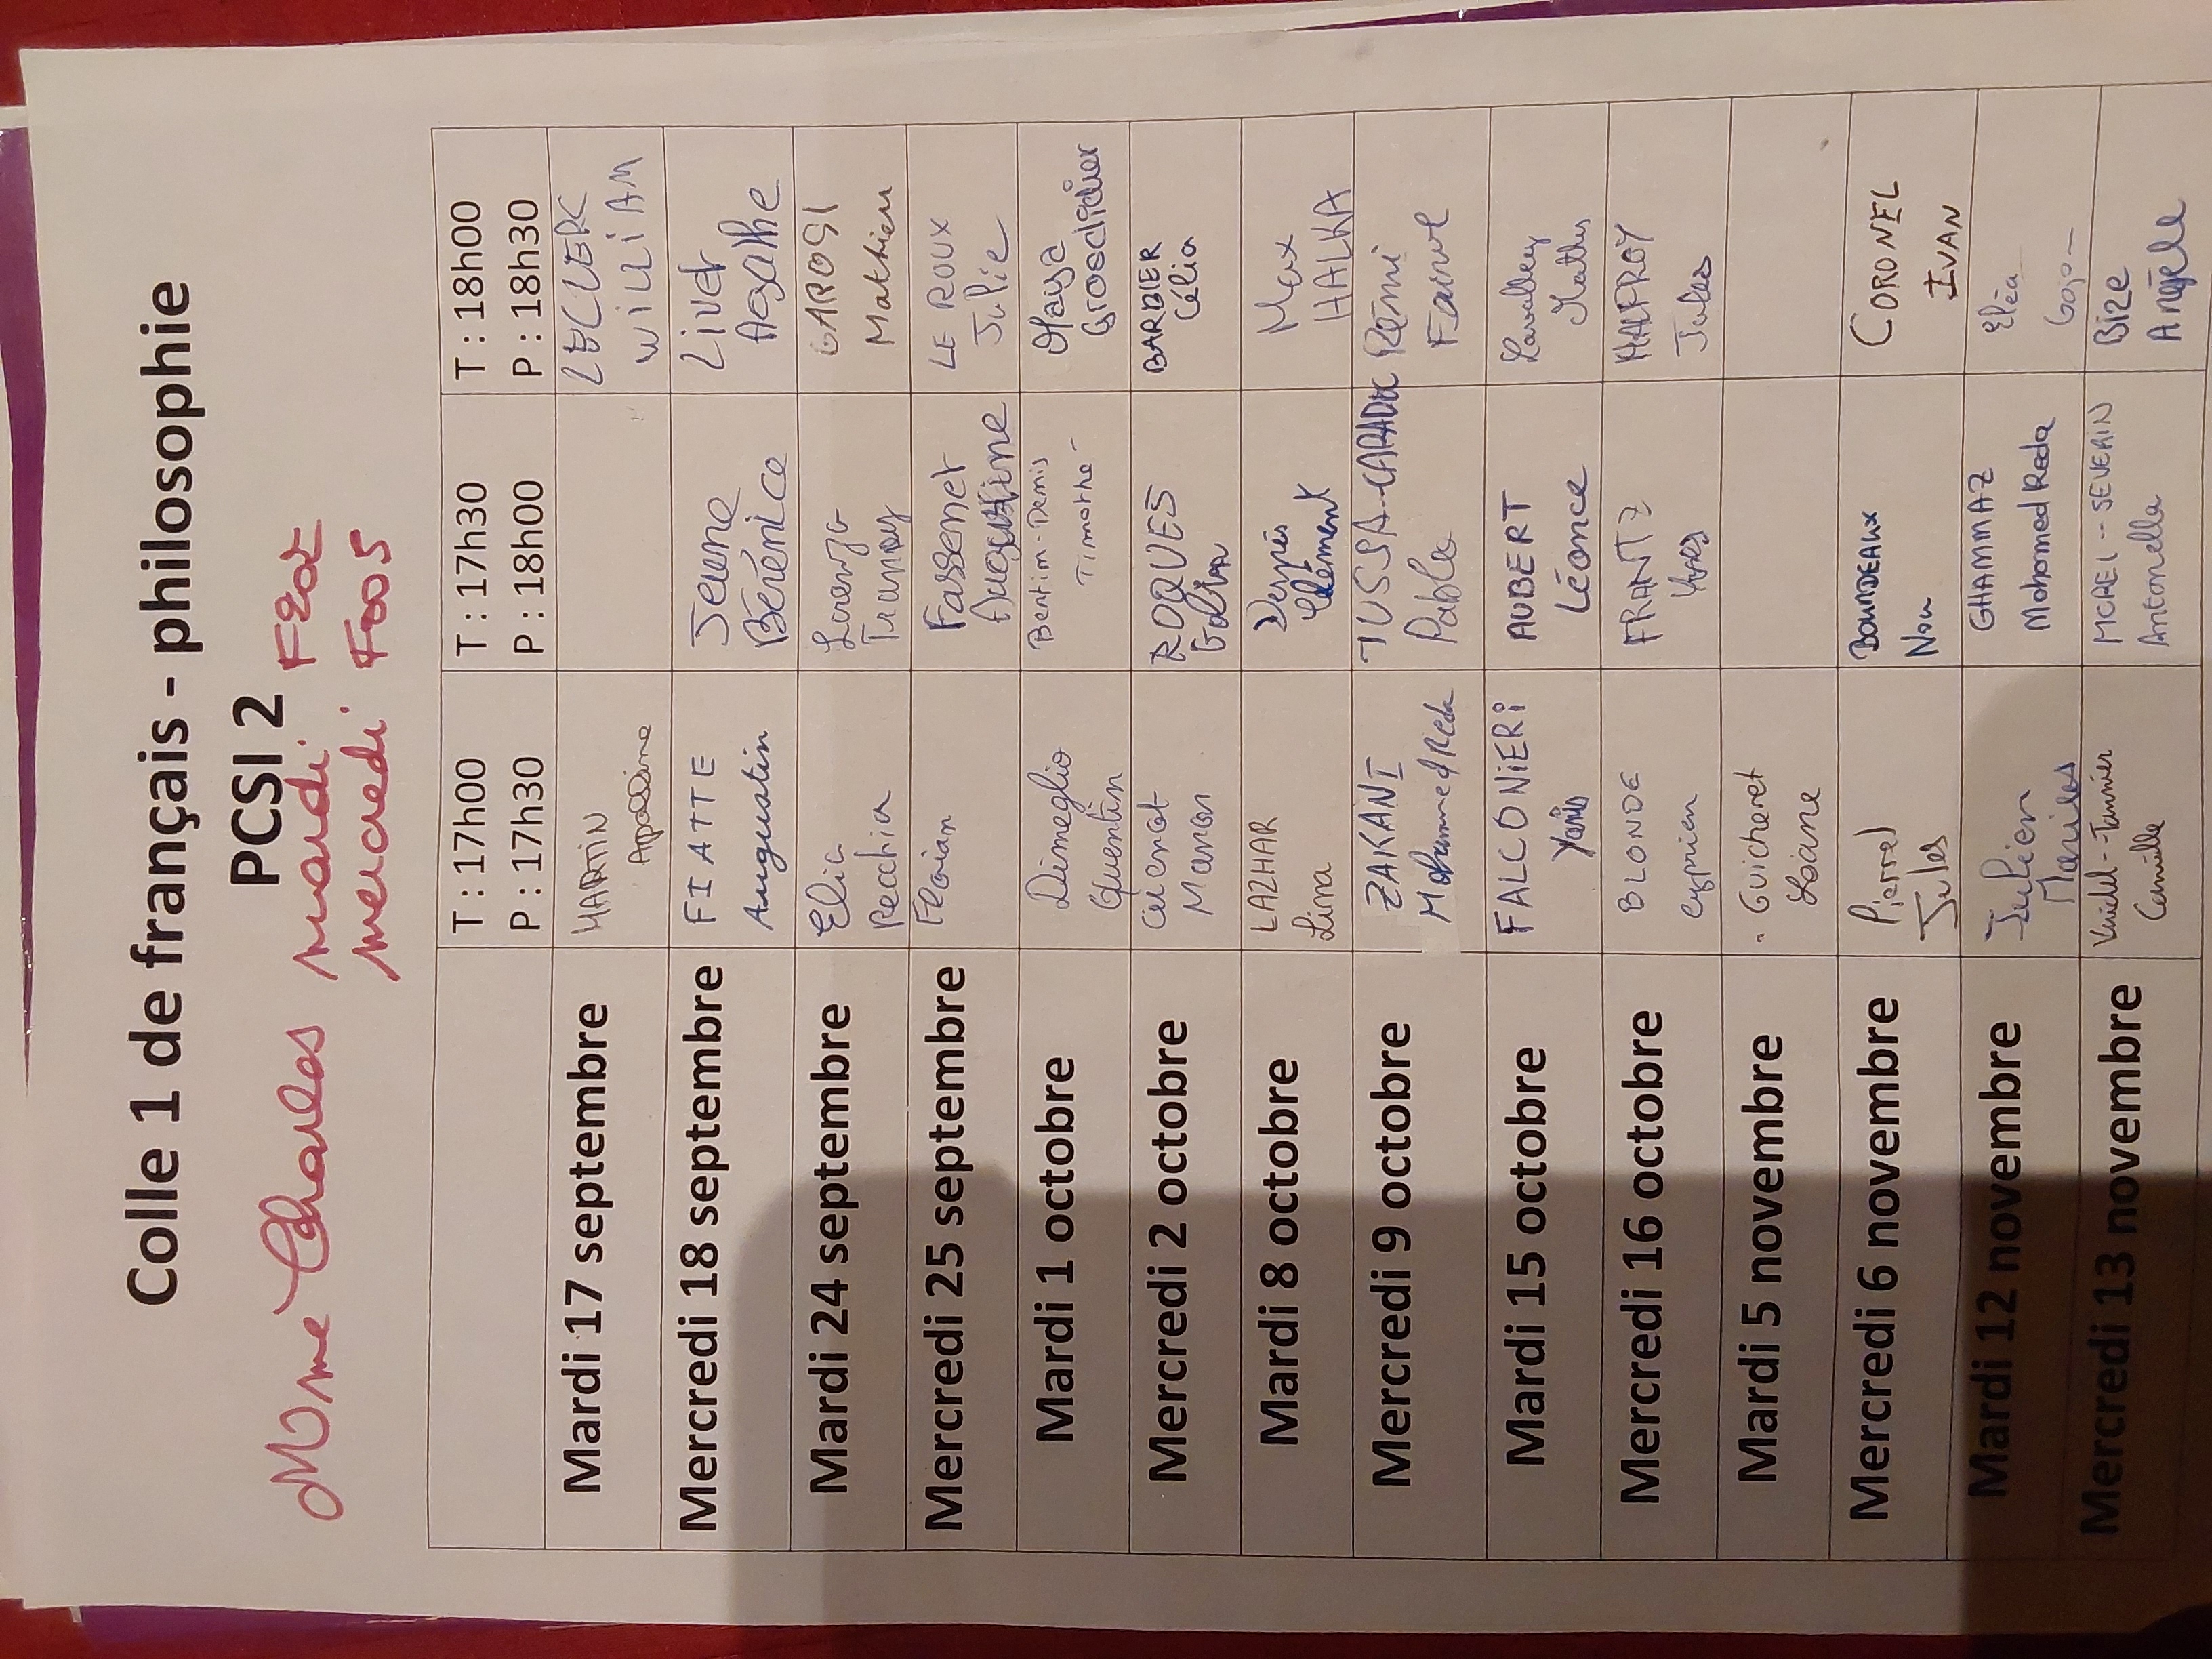 Colle 1 de français - philosophie
PCSI 2
Mme Charles mardi F202
mercredi F005
T : 17h00 T : 17h30 T : 18h00
P : 17h30 P : 18h00 P : 18h30
Mardi 17 septembre MARTIN Apolline LECLERC WILLIAM
Mercredi 18 septembre FIATTE Augustin Jeune Bérénice Livet Agathe
Mardi 24 septembre Elia Recchia Lorenzo Trunay GAROSI Mathieu
Mercredi 25 septembre Florian Fassenet Augustine LE ROUX Julie
Mardi 1 octobre Dimeglio Quentin Bentim-Denis Timothé Maya Grosdidier
Mercredi 2 octobre Cuenot Manon ROQUES BARBIER Célia
Mardi 8 octobre LAZHAR Lina Clément Max HALKA
Mercredi 9 octobre ZAKANI Mohammed Reda TUSSA-CARADEC Pablo Rémi Faivre
Mardi 15 octobre FALCONIERI Yanis AUBERT Léonce Lavalley Mathis
Mercredi 16 octobre BLONDE Cyprien FRANTZ Yves MAUFROY Jules
Mardi 5 novembre Guicheret Loiane
Mercredi 6 novembre Pierrel Jules BOURDEAUX CORONEL IVAN
Mardi 12 novembre Julien Marilos GHAMMAZ Mohamed Reda Eléa
Mercredi 13 novembre Camille MOREL--SEVERIN Antonella Bize Angèle